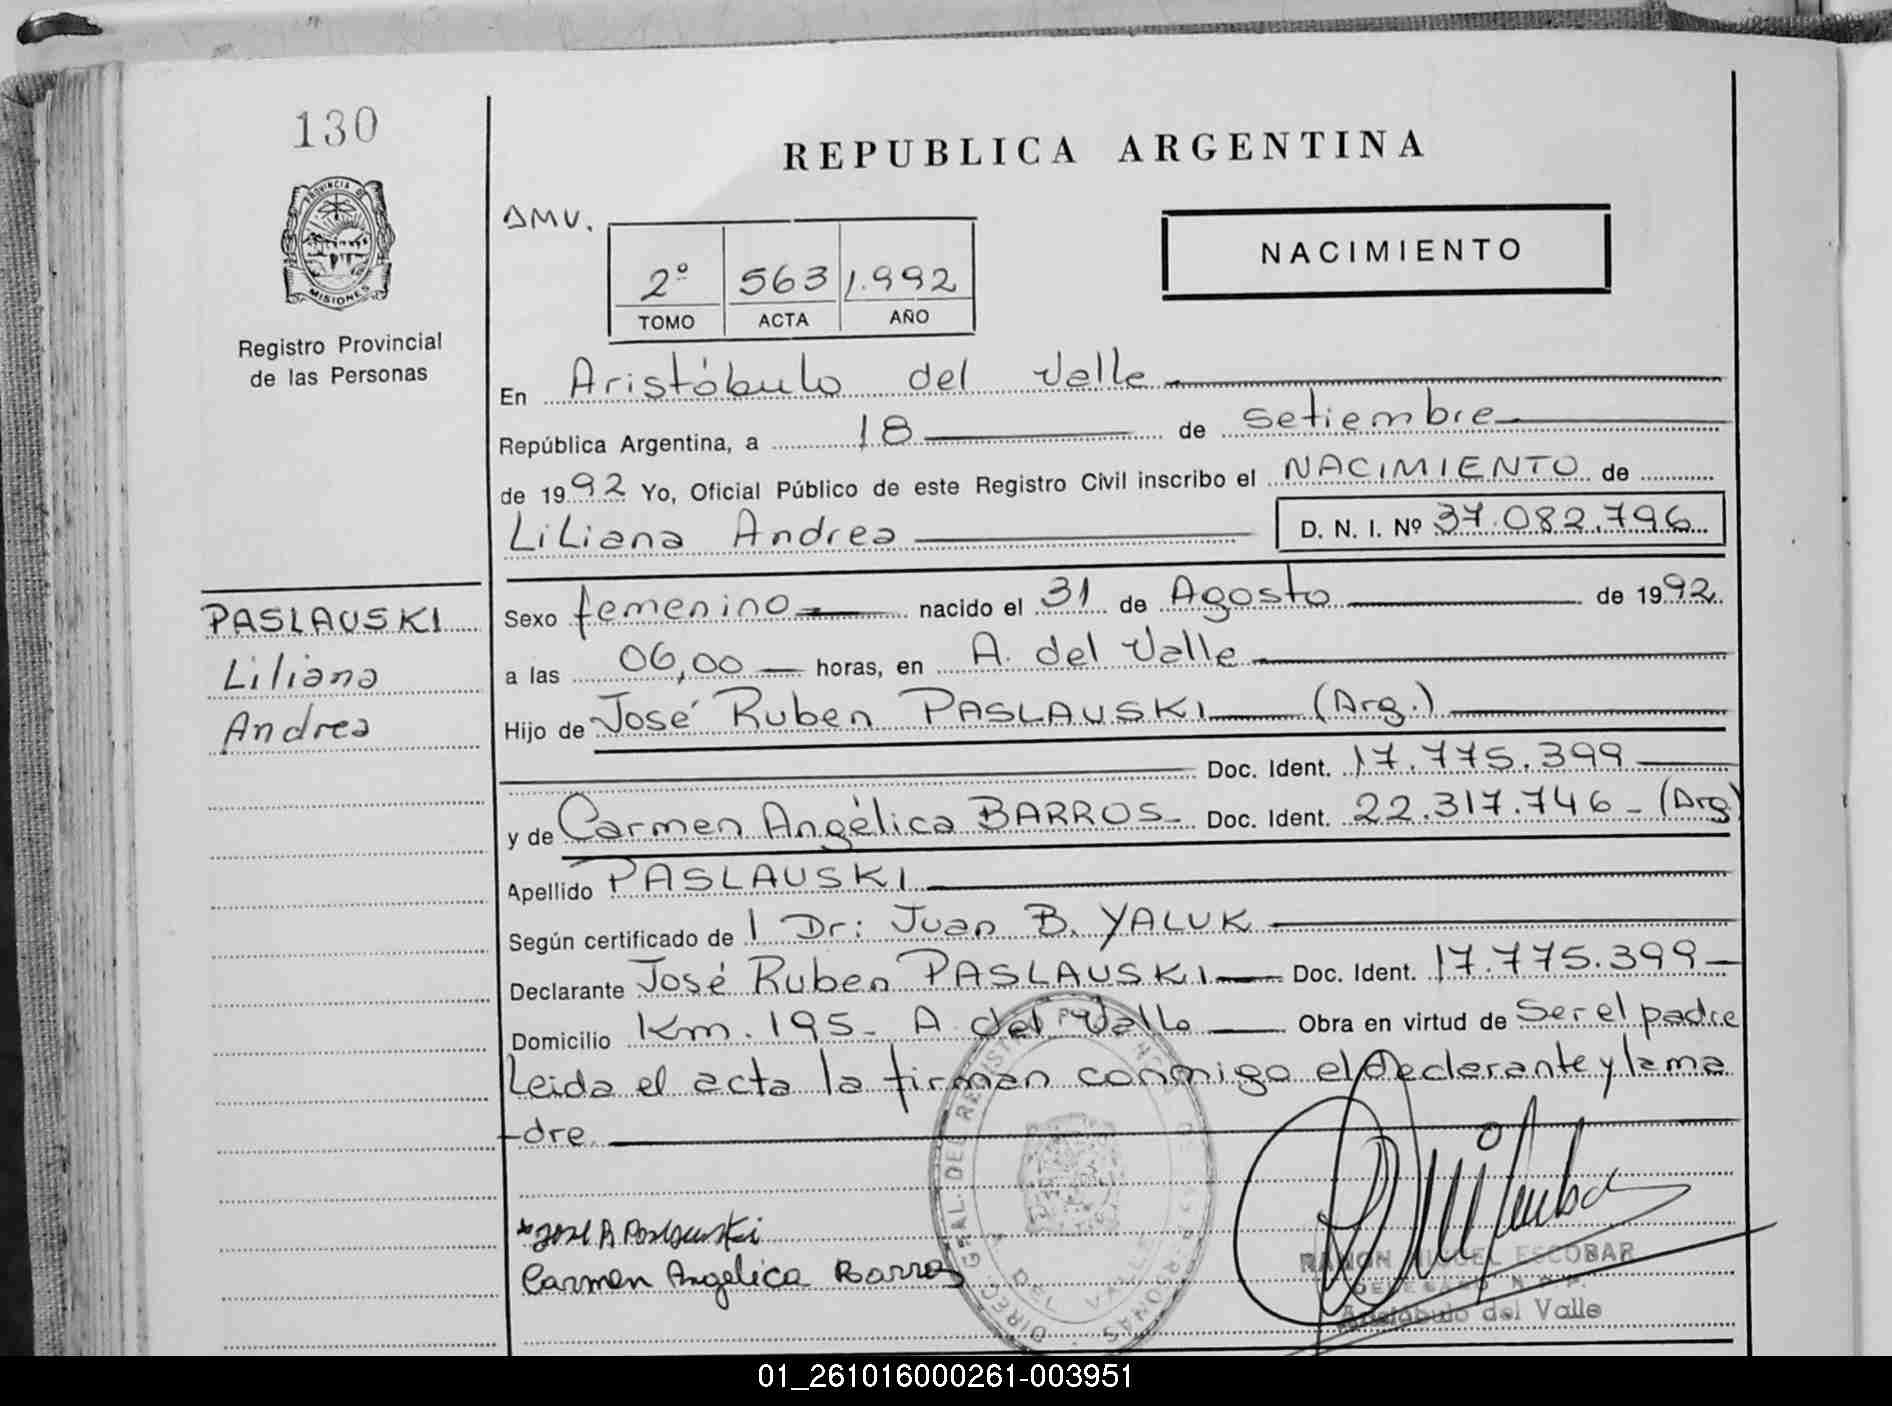 130
PROVINCIA DE
MISIONES
Registro Provincial
de las Personas
PASLAUSKI
Liliana
Andrea
REPUBLICA ARGENTINA
AMV.
2º 563 1.992
TOMO ACTA AÑO
NACIMIENTO
En Aristóbulo del Valle
República Argentina, a 18 de setiembre
de 1992 Yo, Oficial Público de este Registro Civil inscribo el NACIMIENTO de
Liliana Andrea D. N. I. Nº 37.082.796
Sexo femenino nacido el 31 de Agosto de 1992
a las 06,00 horas, en A. del Valle
Hijo de José Ruben PASLAUSKI (Arg.)
Doc. Ident. 17.775.399
y de Carmen Angélica BARROS Doc. Ident. 22.317.746 - (Arg)
Apellido PASLAUSKI
Según certificado de 1 Dr: Juan B. YALUK
Declarante José Ruben PASLAUSKI Doc. Ident. 17.775.399
Domicilio Km. 195 - A del Valle Obra en virtud de Ser el padre
Leida el acta la firman conmigo el declarante y la ma
-dre
Carmen Angelica Barros
RAMON MIGUEL ESCOBAR
Aristóbulo del Valle
01_261016000261-003951